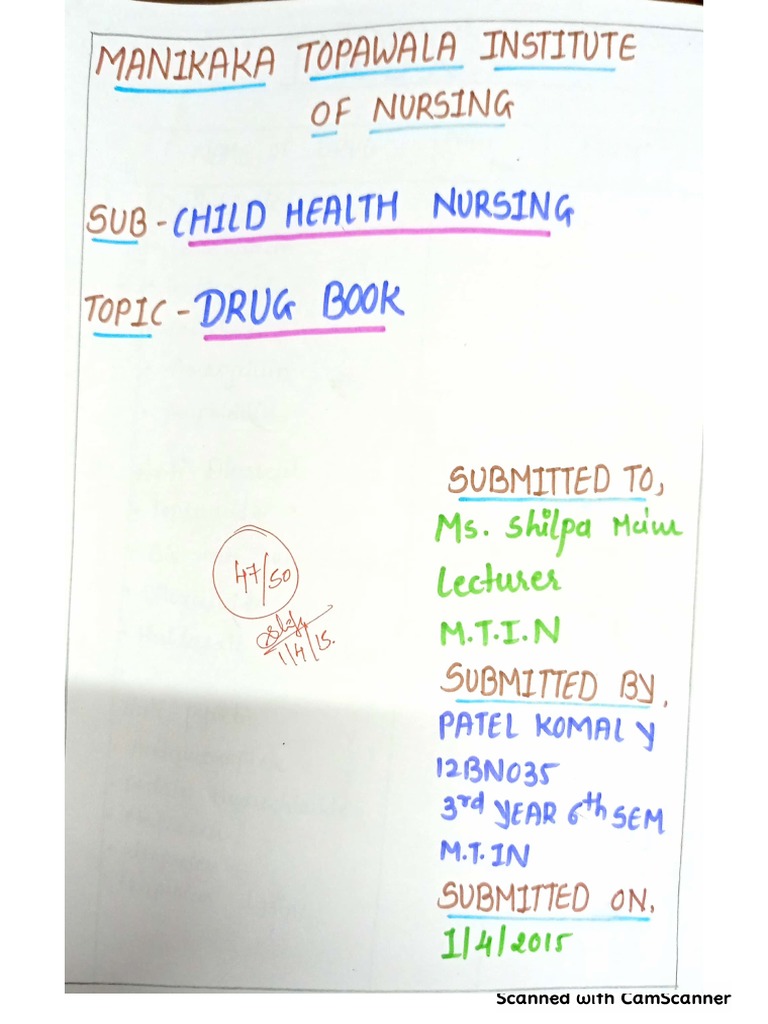 MANIKAKA TOPAWALA INSTITUTE
OF NURSING
SUB - CHILD HEALTH NURSING
TOPIC - DRUG BOOK
SUBMITTED TO,
Ms. Shilpa
Lecturer
M.T.I.N
47/50
1/4/15.
SUBMITTED BY,
PATEL KOMAL Y
12BN035
3rd YEAR 6th SEM
M.T.IN
SUBMITTED ON,
1/4/2015
Scanned with CamScanner